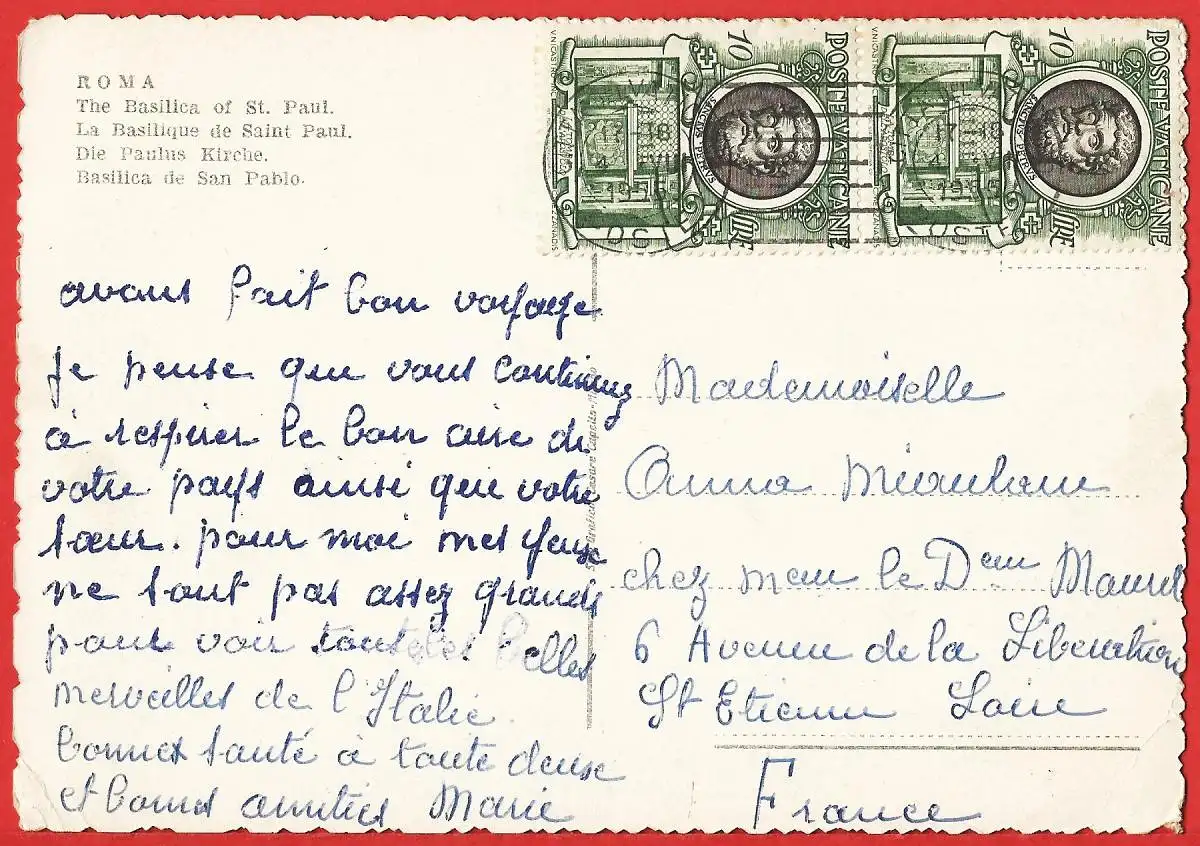 ROMA
The Basilica of St. Paul.
La Basilique de Saint Paul.
Die Paulus Kirche.
Basilica de San Pablo.
POSTE VATICANE
10
LIRE
POSTE VATICANE
10
LIRE
17-18
avons fait bon voyage
je pense que vous continuez
à respirer le bon aire de
votre pays ainsi que votre
sœur. pour moi mes yeux
ne sont pas assez grands
pour voir toutes les belles
merveilles de l'Italie.
bonnes santé à toute deuse
et bonnes amitiés Marie
Mademoiselle
Anna
chez le
6 Avenue de la Libération
St Etienne Loire
France